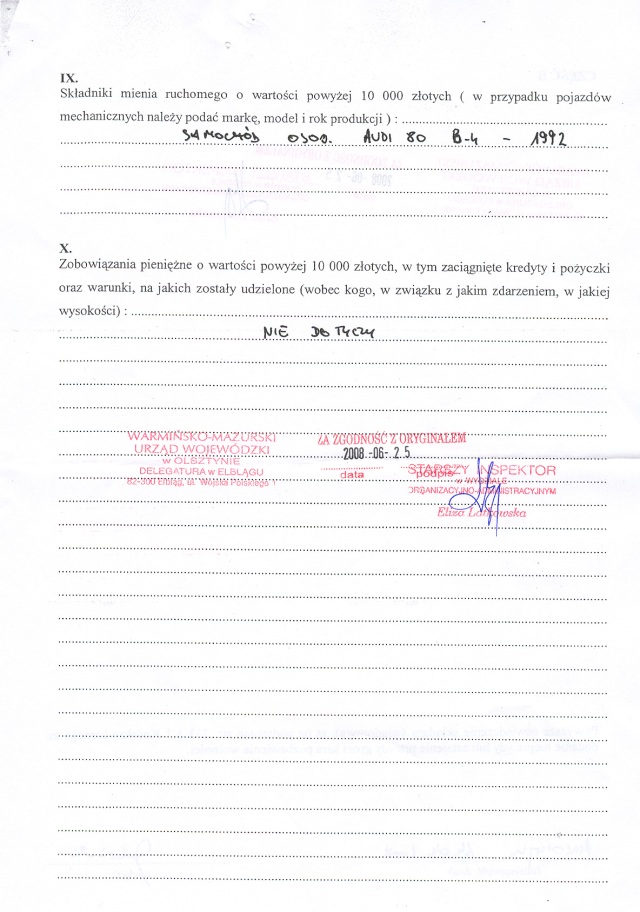 IX.
Składniki mienia ruchomego o wartości powyżej 10 000 złotych ( w przypadku pojazdów
mechanicznych należy podać markę, model i rok produkcji ) :
SAMOCHÓD OSOB. AUDI 80 B-4 - 1992
X.
Zobowiązania pieniężne o wartości powyżej 10 000 złotych, w tym zaciągnięte kredyty i pożyczki
oraz warunki, na jakich zostały udzielone (wobec kogo, w związku z jakim zdarzeniem, w jakiej
wysokości) :
NIE DOTYCZY
WARMIŃSKO-MAZURSKI
URZĄD WOJEWÓDZKI
w OLSZTYNIE
DELEGATURA w ELBLĄGU
82-300 Elbląg, ul. Wojska Polskiego 1
ZA ZGODNOŚĆ Z ORYGINAŁEM
2008 -06- 2 5.
data podpis
STARSZY INSPEKTOR
w WYDZIALE
ORGANIZACYJNO-ADMINISTRACYJNYM
Eliza